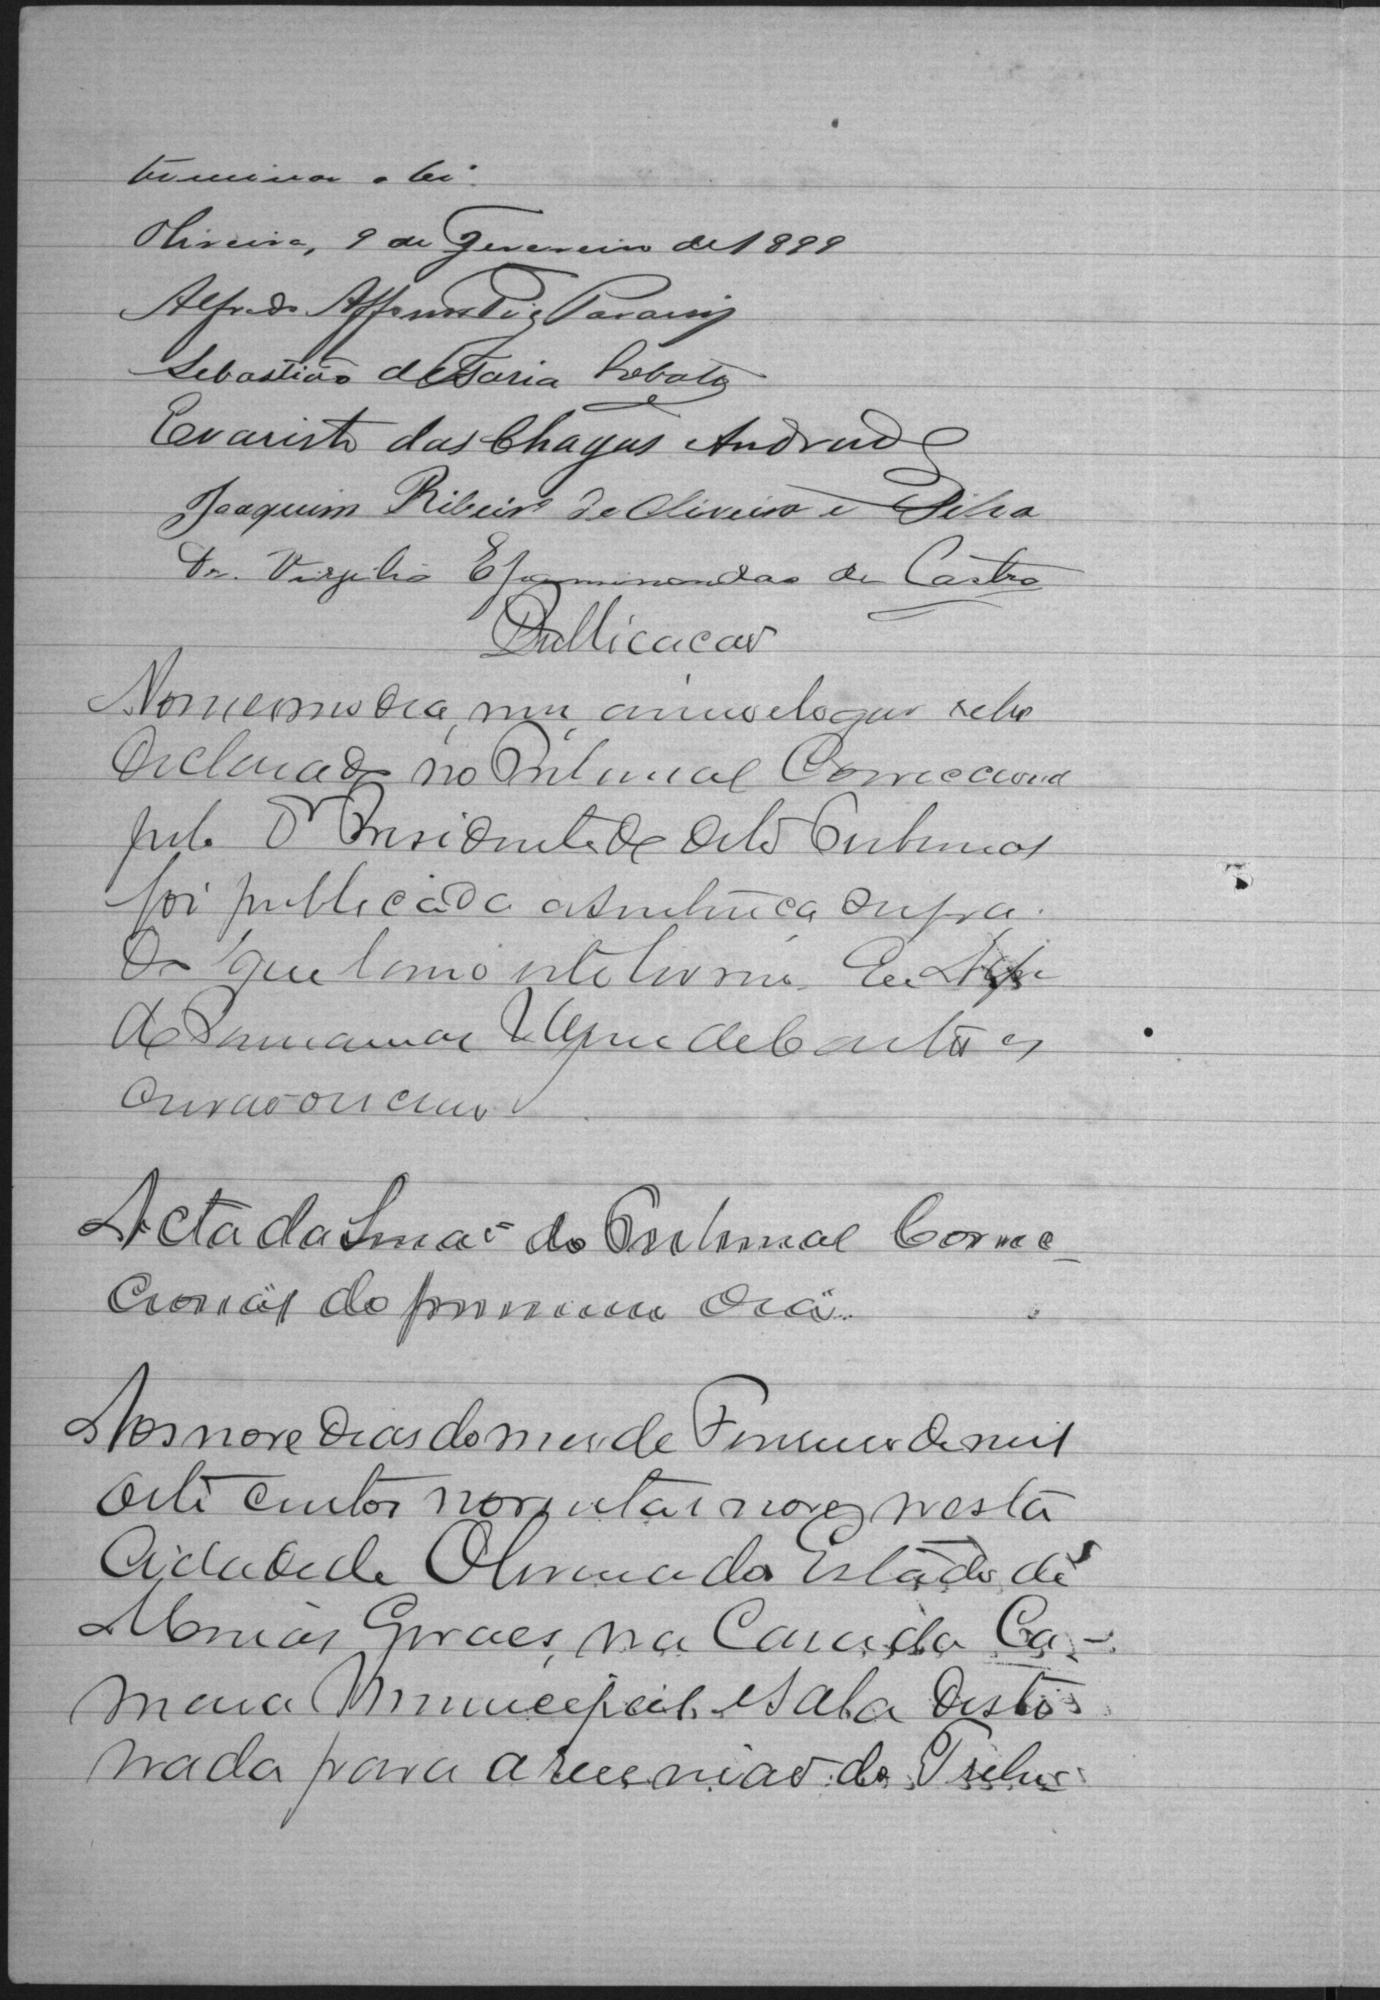 termina a lei.
Oliveira, 9 de Fevereiro de 1899
Alfredo Affonso
Sebastião de Faria Lobato
Evaristo das Chagas Andrade
Joaquim Ribeiro de Oliveira e Silva
Dr. Virgilio Epaminondas de Castro
Publicacao
No mesmo dia, mez, anno e logar
declarado no Tribunal Correccional
pelo Dr Presidente do dito Tribunal
foi publicada a sentença supra.
Do que lavro este termo. Eu
de
escrivão o escrevi
Acta da Sessaõ do Tribunal Correc-
cional do primeiro dia.
Aos nove dias do mez de Fevereiro de mil
oito centos noventa e nove, nesta
Cidade de Oliveira do Estado de
Minas Geraes, na Casa da Ca-
mara Municipal e sala desti
nada para a reuniaõ do Tribu